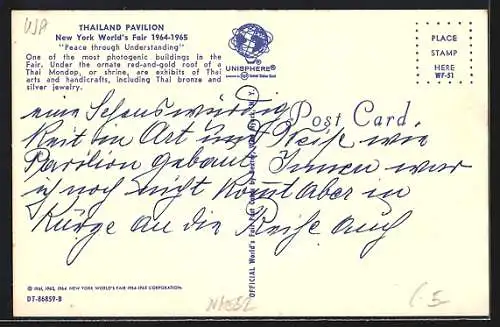 USA
THAILAND PAVILION
New York World's Fair 1964-1965
"Peace through Understanding"
One of the most photogenic buildings in the
Fair. Under the ornate red-and-gold root of a
Thai Mondop, or shrine, are exhibits of Thai
arts and handicrafts, including Thai bronze and
silver jewelry.
UNISPHERE®
United States Steel
PLACE
STAMP
HERE
WF-51
Post Card
eine Sehenswürdig
keit in Art und Weise wie
Pavilion gebaut. Innen war
ich noch nicht kommt Aber in
Kürze an die Reihe auch
OFFICIAL World's Fair Post Card by
© 1961, 1962, 1964 NEW YORK WORLD'S FAIR 1964-1965 CORPORATION
DT-86859-B